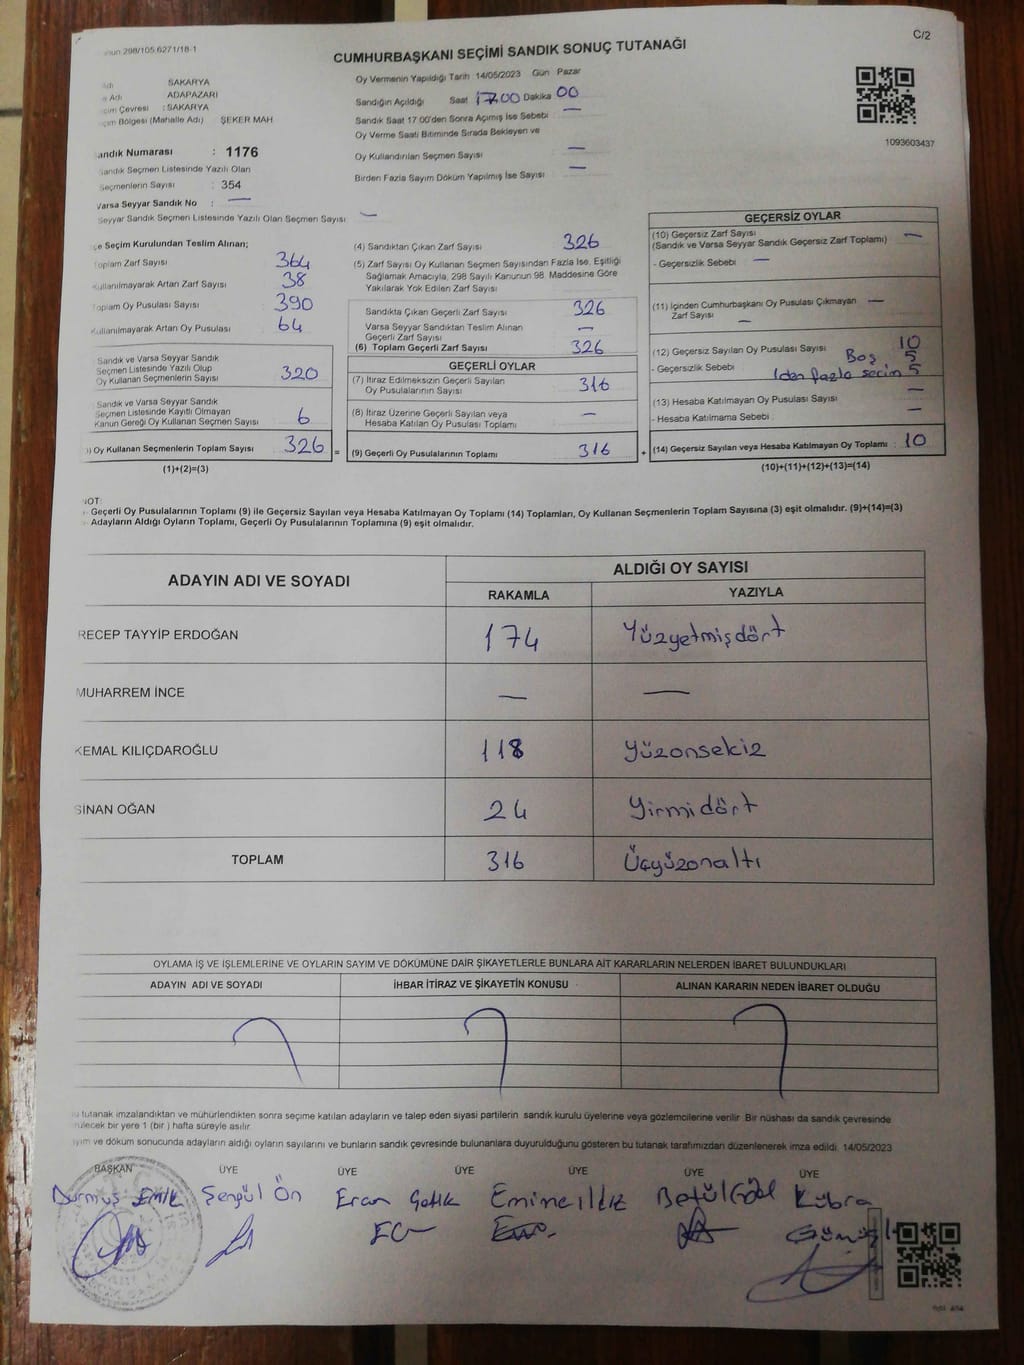 298/105.6271/18-1
C/2
CUMHURBAŞKANI SEÇİMİ SANDIK SONUÇ TUTANAĞI
SAKARYA
Adı ADAPAZARI
Çevresi : SAKARYA
Bölgesi (Mahalle Adı) ŞEKER MAH
Sandık Numarası : 1176
Sandık Seçmen Listesinde Yazılı Olan
Seçmenlerin Sayısı : 354
Varsa Seyyar Sandık No : —
Seyyar Sandık Seçmen Listesinde Yazılı Olan Seçmen Sayısı —
Oy Vermenin Yapıldığı Tarih 14/05/2023 Gün Pazar
Sandığın Açıldığı Saat 17.00 Dakika 00
Sandık Saat 17.00'den Sonra Açılmış İse Sebebi —
Oy Verme Saati Bitiminde Sırada Bekleyen ve
Oy Kullandırılan Seçmen Sayısı —
Birden Fazla Sayım Döküm Yapılmış İse Sayısı —
1093603437
Seçim Kurulundan Teslim Alınan;
Toplam Zarf Sayısı 364
Kullanılmayarak Artan Zarf Sayısı 38
Toplam Oy Pusulası Sayısı 390
Kullanılmayarak Artan Oy Pusulası 64
Sandık ve Varsa Seyyar Sandık
Seçmen Listesinde Yazılı Olup
Oy Kullanan Seçmenlerin Sayısı 320
Sandık ve Varsa Seyyar Sandık
Seçmen Listesinde Kayıtlı Olmayan
Kanun Gereği Oy Kullanan Seçmen Sayısı 6
) Oy Kullanan Seçmenlerin Toplam Sayısı 326 =
(1)+(2)=(3)
(4) Sandıktan Çıkan Zarf Sayısı 326
(5) Zarf Sayısı Oy Kullanan Seçmen Sayısından Fazla İse, Eşitliği
Sağlamak Amacıyla, 298 Sayılı Kanunun 98. Maddesine Göre
Yakılarak Yok Edilen Zarf Sayısı
Sandıkta Çıkan Geçerli Zarf Sayısı 326
Varsa Seyyar Sandıktan Teslim Alınan
Geçerli Zarf Sayısı —
(6) Toplam Geçerli Zarf Sayısı 326
GEÇERLİ OYLAR
(7) İtiraz Edilmeksizin Geçerli Sayılan
Oy Pusulalarının Sayısı 316
(8) İtiraz Üzerine Geçerli Sayılan veya
Hesaba Katılan Oy Pusulası Toplamı —
(9) Geçerli Oy Pusulalarının Toplamı 316 +
GEÇERSİZ OYLAR
(10) Geçersiz Zarf Sayısı
(Sandık ve Varsa Seyyar Sandık Geçersiz Zarf Toplamı) —
- Geçersizlik Sebebi —
(11) İçinden Cumhurbaşkanı Oy Pusulası Çıkmayan —
Zarf Sayısı —
(12) Geçersiz Sayılan Oy Pusulası Sayısı 10
- Geçersizlik Sebebi Boş 5
1den fazla seçim 5
(13) Hesaba Katılmayan Oy Pusulası Sayısı —
- Hesaba Katılmama Sebebi —
(14) Geçersiz Sayılan veya Hesaba Katılmayan Oy Toplamı : 10
(10)+(11)+(12)+(13)=(14)
NOT:
- Geçerli Oy Pusulalarının Toplamı (9) ile Geçersiz Sayılan veya Hesaba Katılmayan Oy Toplamı (14) Toplamları, Oy Kullanan Seçmenlerin Toplam Sayısına (3) eşit olmalıdır. (9)+(14)=(3)
- Adayların Aldığı Oyların Toplamı, Geçerli Oy Pusulalarının Toplamına (9) eşit olmalıdır.
ADAYIN ADI VE SOYADI
ALDIĞI OY SAYISI
RAKAMLA YAZIYLA
RECEP TAYYİP ERDOĞAN 174 Yüzyetmişdört
MUHARREM İNCE — —
KEMAL KILIÇDAROĞLU 118 Yüzonsekiz
SİNAN OĞAN 24 Yirmidört
TOPLAM 316 Üçyüzonaltı
OYLAMA İŞ VE İŞLEMLERİNE VE OYLARIN SAYIM VE DÖKÜMÜNE DAİR ŞİKAYETLERLE BUNLARA AİT KARARLARIN NELERDEN İBARET BULUNDUKLARI
ADAYIN ADI VE SOYADI İHBAR İTİRAZ VE ŞİKAYETİN KONUSU ALINAN KARARIN NEDEN İBARET OLDUĞU
tutanak imzalandıktan ve mühürlendikten sonra seçime katılan adayların ve talep eden siyasi partilerin sandık kurulu üyelerine veya gözlemcilerine verilir. Bir nüshası da sandık çevresinde
bir yere 1 (bir ) hafta süreyle asılır.
ve döküm sonucunda adayların aldığı oyların sayılarını ve bunların sandık çevresinde bulunanlara duyurulduğunu gösteren bu tutanak tarafımızdan düzenlenerek imza edildi. 14/05/2023
BAŞKAN ÜYE ÜYE ÜYE ÜYE ÜYE ÜYE
Durmuş Şengül Ön Ercan Emine Betül Kübra